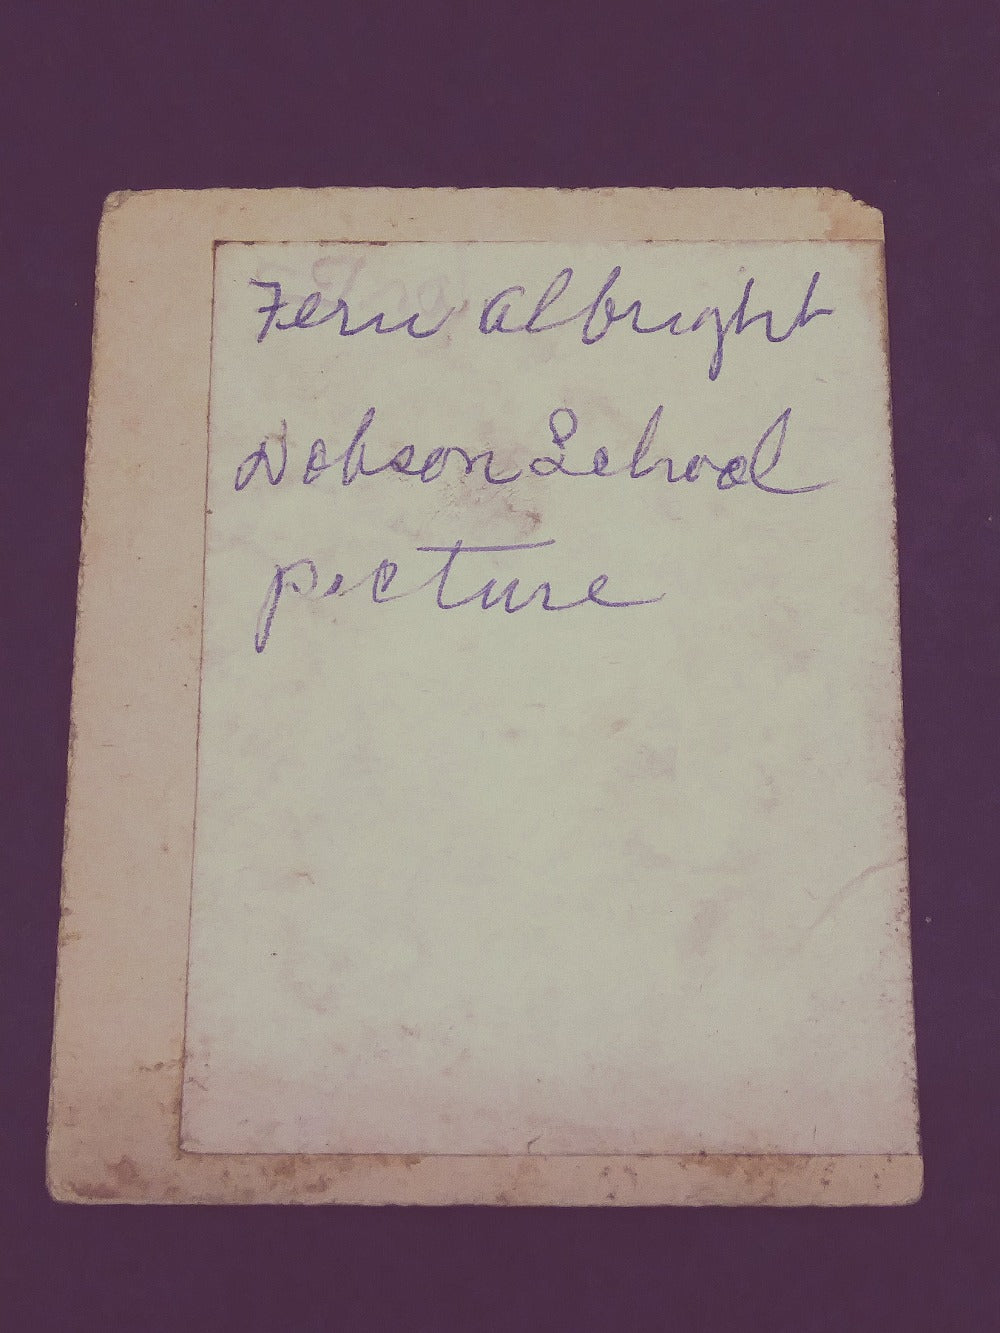 Fern Albright
Dobson School
picture